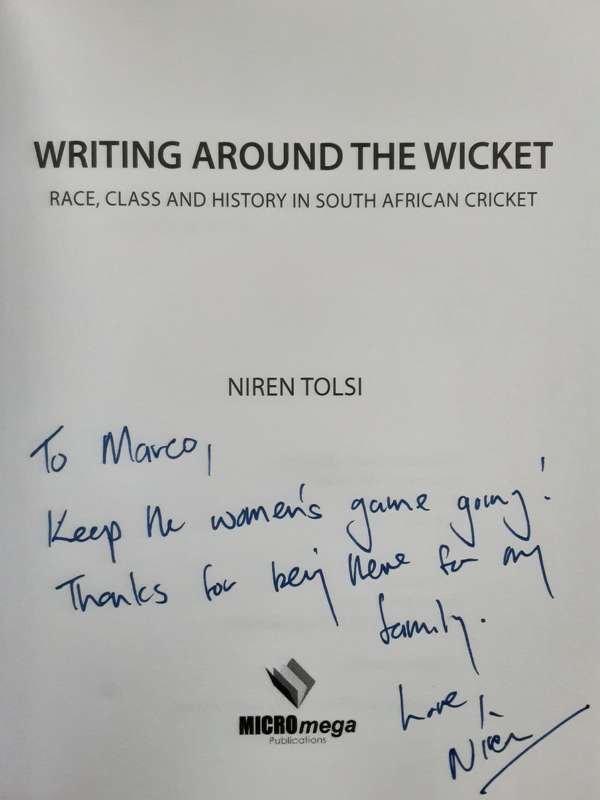 WRITING AROUND THE WICKET
RACE, CLASS AND HISTORY IN SOUTH AFRICAN CRICKET
NIREN TOLSI
To Marco,
Keep the women's game going!
Thanks for being there for my
family.
Love,
Niren
MICROmega
Publications